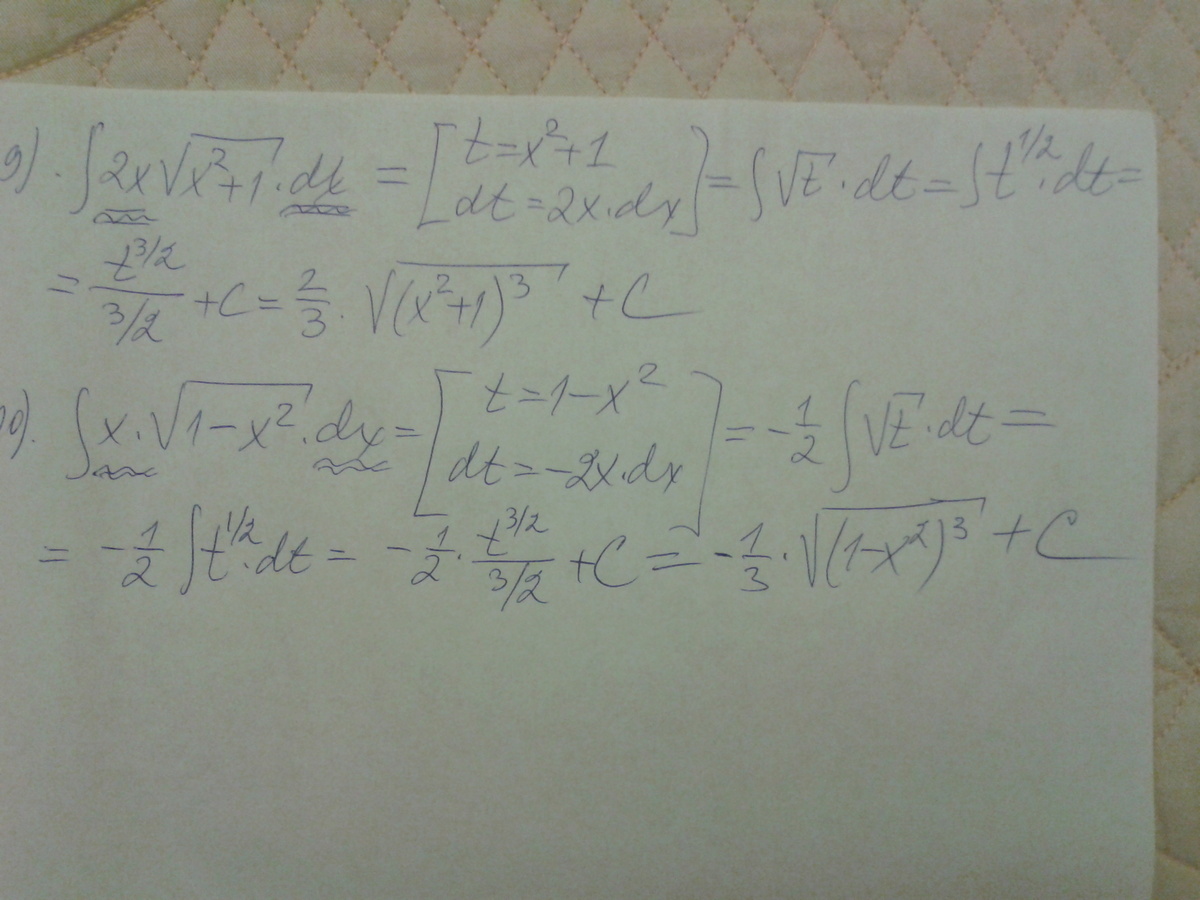 9). ∫2x√(x²+1)·dx = [t=x²+1 dt=2x·dx] = ∫√t·dt = ∫t^{1/2}·dt =
= t^{3/2}/(3/2) + C = 2/3·√((x²+1)³) + C
10). ∫x·√(1-x²)·dx = [t=1-x² dt=-2x·dx] = -1/2 ∫√t·dt =
= -1/2 ∫t^{1/2}·dt = -1/2·t^{3/2}/(3/2) + C = -1/3·√((1-x²)³) + C